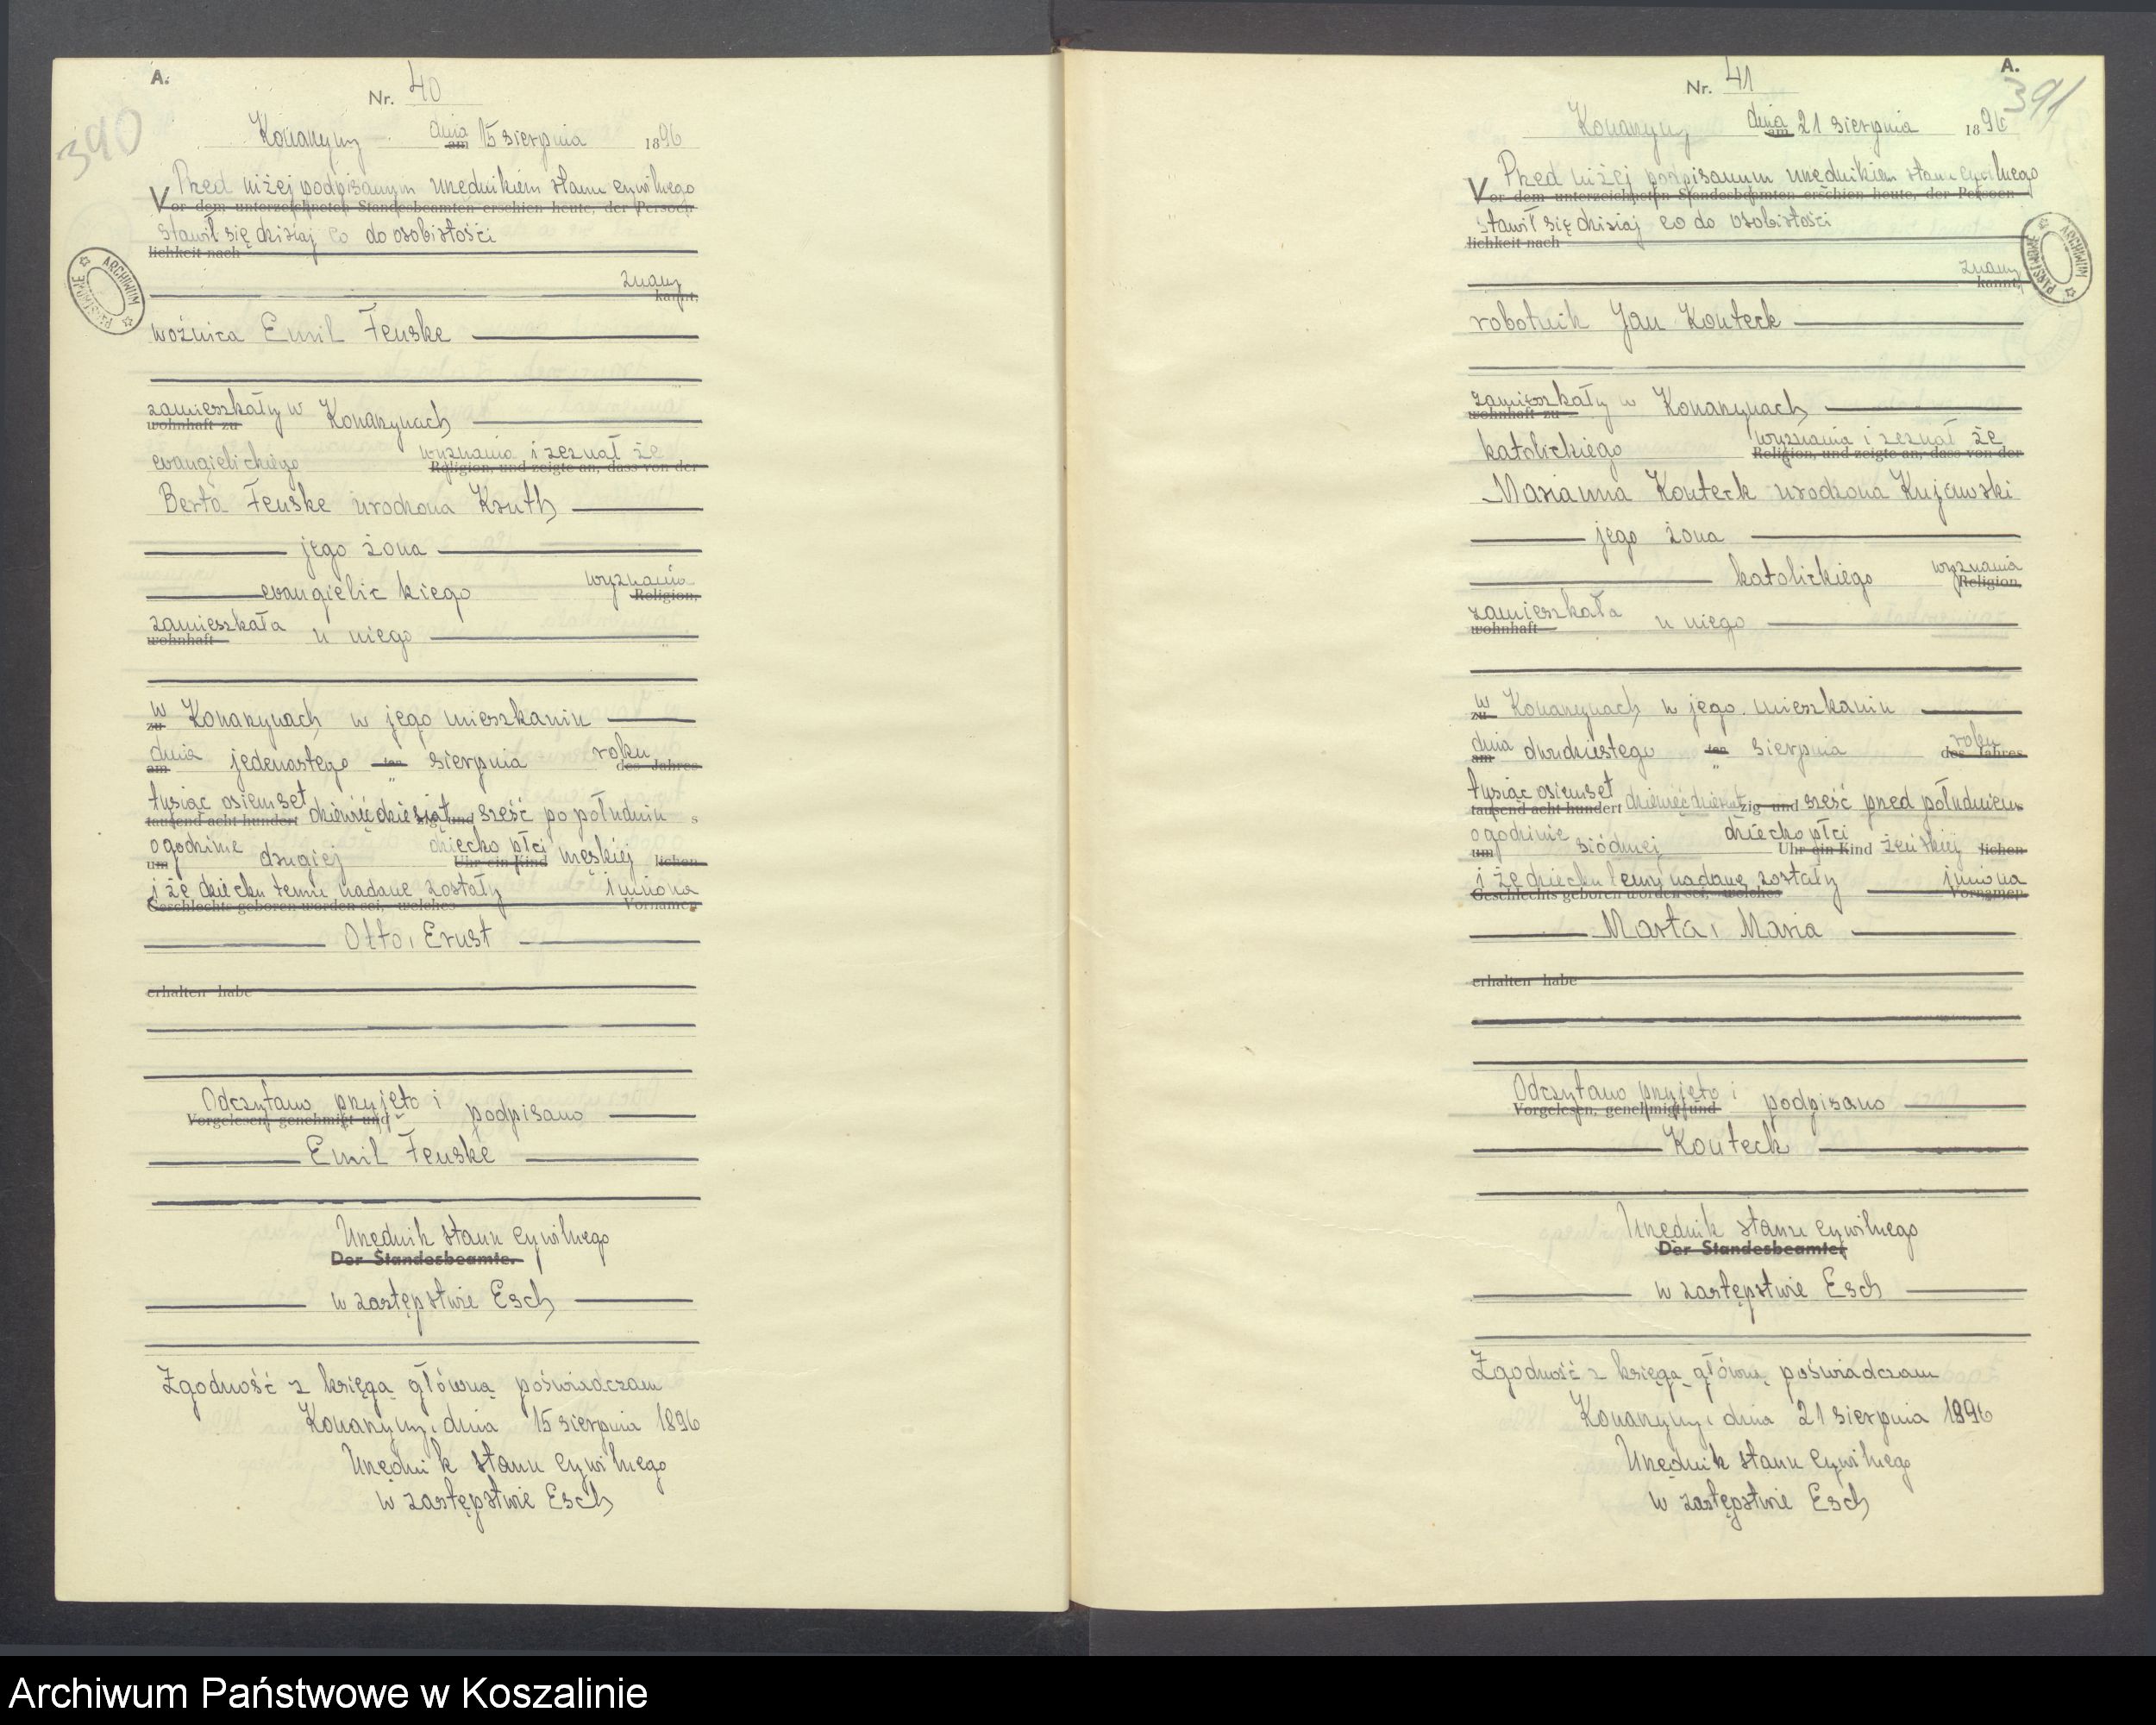 A.
390
Nr. 40
Konarzyny dnia am 15 sierpnia 1896
Przed niżej podpisanym urzędnikiem stanu cywilnego
Vor dem unterzeichneten Standesbeamten erschien heute, der Persön-
stawił się dzisiaj co do osobistości
lichkeit nach
znany
kannt,
woźnica Emil Fenske
zamieszkały w Konarzynach
wohnhaft zu
evangielickiego wyznania i zeznał że
Religion, und zeigte an, dass von der
Berta Fenske urodzona Kruth
jego żona
evangielickiego wyznania
Religion,
zamieszkała u niego
wohnhaft
w Konarzynach w jego mieszkaniu
zu
dnia jedenastego ten sierpnia roku
am des Jahres
tysiąc osiemset dziewięćdziesiąt sześć po południu
tausend acht hundert zig und s
o godzinie drugiej dziecko płci męskiej
um Uhr ein Kind lichen
i że dziecku temu nadane zostały imiona
Geschlechts geboren worden sei, welches Vornamen
Otto, Ernst
erhalten habe
Odczytano przyjęto i podpisano
Vorgelesen, genehmigt und
Emil Fenske
Urzędnik stanu cywilnego
Der Standesbeamte.
w zastępstwie Esch
Zgodność z księgą główną poświadczam
Konarzyny, dnia 15 sierpnia 1896
Urzędnik stanu cywilnego
w zastępstwie Esch
A.
391
Nr. 41
Konarzyny dnia am 21 sierpnia 1896
Przed niżej podpisanym urzędnikiem stanu cywilnego
Vor dem unterzeichneten Standesbeamten erschien heute, der Persön-
stawił się dzisiaj co do osobistości
lichkeit nach
znany
kannt,
robotnik Jan Konteck
zamieszkały w Konarzynach
wohnhaft zu
katolickiego wyznania i zeznał że
Religion, und zeigte an, dass von der
Marianna Konteck urodzona Kujawski
jego żona
katolickiego wyznania
Religion,
zamieszkała u niego
wohnhaft
w Konarzynach w jego mieszkaniu
zu
dnia dwudziestego ten sierpnia roku
am des Jahres
tysiąc osiemset dziewięćdziesiąt sześć przed południem
tausend acht hundert zig und
o godzinie siódmej dziecko płci żeńskiej
um Uhr ein Kind lichen
i że dziecku temu nadane zostały imiona
Geschlechts geboren worden sei, welches Vornamen
Marta, Maria
erhalten habe
Odczytano przyjęto i podpisano
Vorgelesen, genehmigt und
Konteck
Urzędnik stanu cywilnego
Der Standesbeamte.
w zastępstwie Esch
Zgodność z księgą główną poświadczam
Konarzyny, dnia 21 sierpnia 1896
Urzędnik stanu cywilnego
w zastępstwie Esch
ARCHIWUM PAŃSTWOWE
ARCHIWUM PAŃSTWOWE
Archiwum Państwowe w Koszalinie